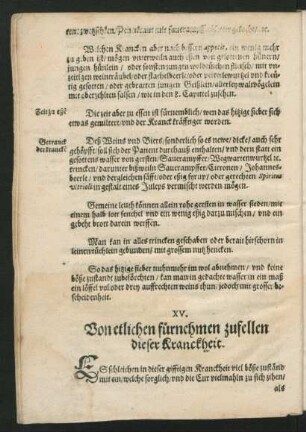 Welchen Krancken aber nach bessern appetit, ein wenig mehr
zu geben ist/ mögen unterweiln auch essen von gesottnen hünern/
jungen hünlein/ oder sonsten
zeitigen weintreubel/ oder
gesottenen oder gebratenen jungen
mit oberzehlten säfften/ wie in dem L. Capitel zusehen.
Zeit zu essē
Die zeit aber zu essen ist fürnemblich/ wenn das hitzige fieber sich
etwas gemiltert/ und der Kranck kräfftiger worden.
Getranck
der krancke
Deß Weins und Biers sonderlich so es newe dicke/ auch sehr
gehöpfft/ soll sich der Patient durchauß enthalten/ und dern stat ein
gesottens wasser von gersten/ Saurampffer/ Wegwartenwurtzel
trincken/ darunter bißweiln Saurampffer/ Citronen/ Johannes-
beerle/ und dergleichen säfft/ oder
in gestalt eines Juleps vermischt werden mögen.
Gemeine leuth können allein rohe gersten in wasser sieden/ mit
einem halb loot fenchel und ein wenig essig darzu mischen/ und ein
gebehe brot darein werffen.
Man kan in alles trincken geschaben oder betait hirschorn in
leinentüchlein gebunden/ mit grossem nutz hencken.
So das hitzige fieber nuhnmehr im wol abnehmen/ und keine
böse zustandt zubeförchten/ kan man in gedachte wasser in ein maß
ein löffel vol oder drey auffrechten weins thun/ jedoch mit grosser be-
scheidenheit.
XV.
Von etlichen fürnehmen zufellen
dieser Kranckheit.
ES schleichen in dieser gifftigen Kranckheit viel böße zuständ
mit ein/ welche sorglich/ und die Cur vielmahln zu sich ziehen/
als